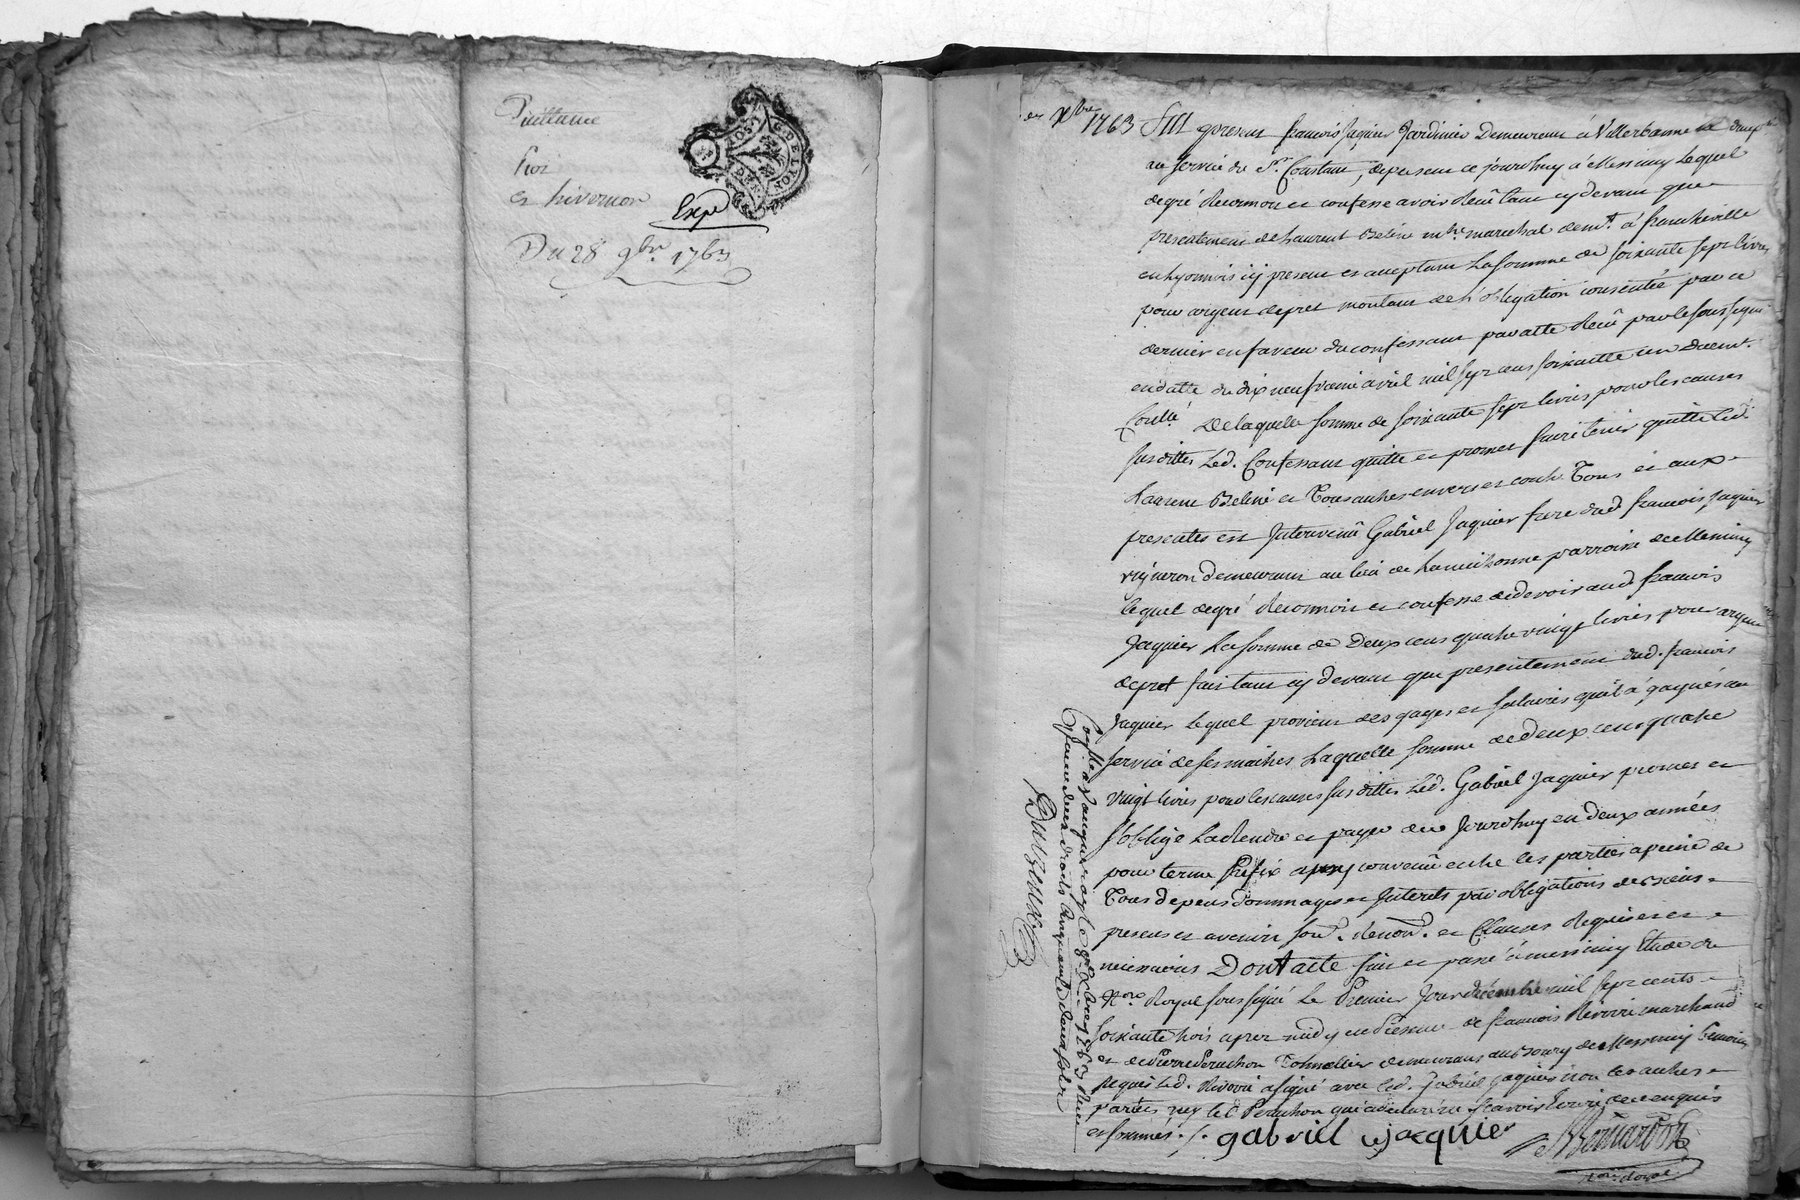 Quittance
Fioz
et hivernon
Expé
Du 28 9bre 1763
G. DE LYON
1er Xbre 1763 Fut present francois Jaquier Jardinier Demeurant à Villerbanne en daup.
au service du Sr. Constant, depresent ce jourdhuy à Messimy Lequel
degré Reconnoit et confesse avoir Receu tant cydevant que
presentement de Laurent Beliné mtre marechal demt. à francheville
en Lyonnois icy present et acceptant La somme de soixante sept livres
pour argent depret montant de L'obligation consentie par ce
dernier en faveur du confessant par acte Receu par le soussigné
en datte du dix neuf avril mil sept cens soixante un Duemt.
Conllé. De laquelle somme de soixante sept livres pour les causes
susdittes Led. Confessant quitte et promet faire tenir quitte Led.
Laurent Beliné et Tous autres envers et contre Tous et aux
presentes est Intervenû Gabriel Jaquier frere dud. francois Jaquier
vigneron demeurant au lieu de parroisse de Messimy
lequel degré Reconnoit et confesse devoir aud. francois
Jaquier La somme de Deux cens quatre vingt livres pour argent
depret fait tant cydevant que presentement dud. francois
Jaquier Lequel provient des gages et salaires qu'il à gagnés au
service de ses maitres Laquelle somme de deux cens quatre
vingt livres pour les causes susdittes Led. Gabriel Jaquier promet et
s'oblige La Rendre et payer de ce Jourdhuy en deux années
pour terme Prefix convenû entre les parties apeine de
Tous depens dommages et Interets par obligations de ses biens
presents et avenir soud. Renond. et Clauses Requises et
necessaires Dont acte fait et passé à messimy Etude du
Nore. Royal soussigné Le Premier Jour décembre mil sept cents
soixante trois apres midy en Presence de francois Rivoiré marchand
et de Pierre Peruchon Tonnellier demeurans au Bourg de Messimy temoins
requis Led. Rivoiré a signé avec led. Gabriel Jaquier non les autres
parties ny led Peruchon qui ont declaré ne scavoir Ecrire de ce enquis
et sommés ./.
gabriel jacquier
Conllé à Vaugneray le 8e. Xbre 1763 Reçu